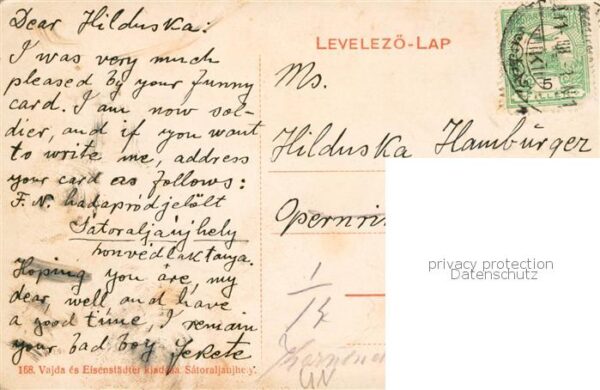 Dear Hilduska:
I was very much
pleased by your funny
card. I am now sol-
dier, and if you want
to write me, address
your card as follows:
F. N. hadapródjelölt
Sátoraljaújhely
honvédlaktanya.
Hoping you are, my
dear, well and have
a good time, I remain
your bad boy Fekete
168. Vajda és Eisenstädter kiadása. Sátoraljaújhely.
LEVELEZŐ-LAP
Ms.
Hilduska Hamburger
Opernri
1/14
privacy protection
Datenschutz